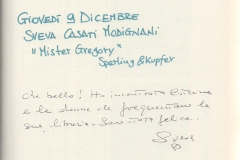 GIOVEDÌ 9 DICEMBRE
SVEVA CASATI MODIGNANI
"Mister Gregory"
Sperling & Kupfer
Che bello! Ho incontrato
e le donne che frequentano la
sua libreria. Sono molto felice.
Sveva